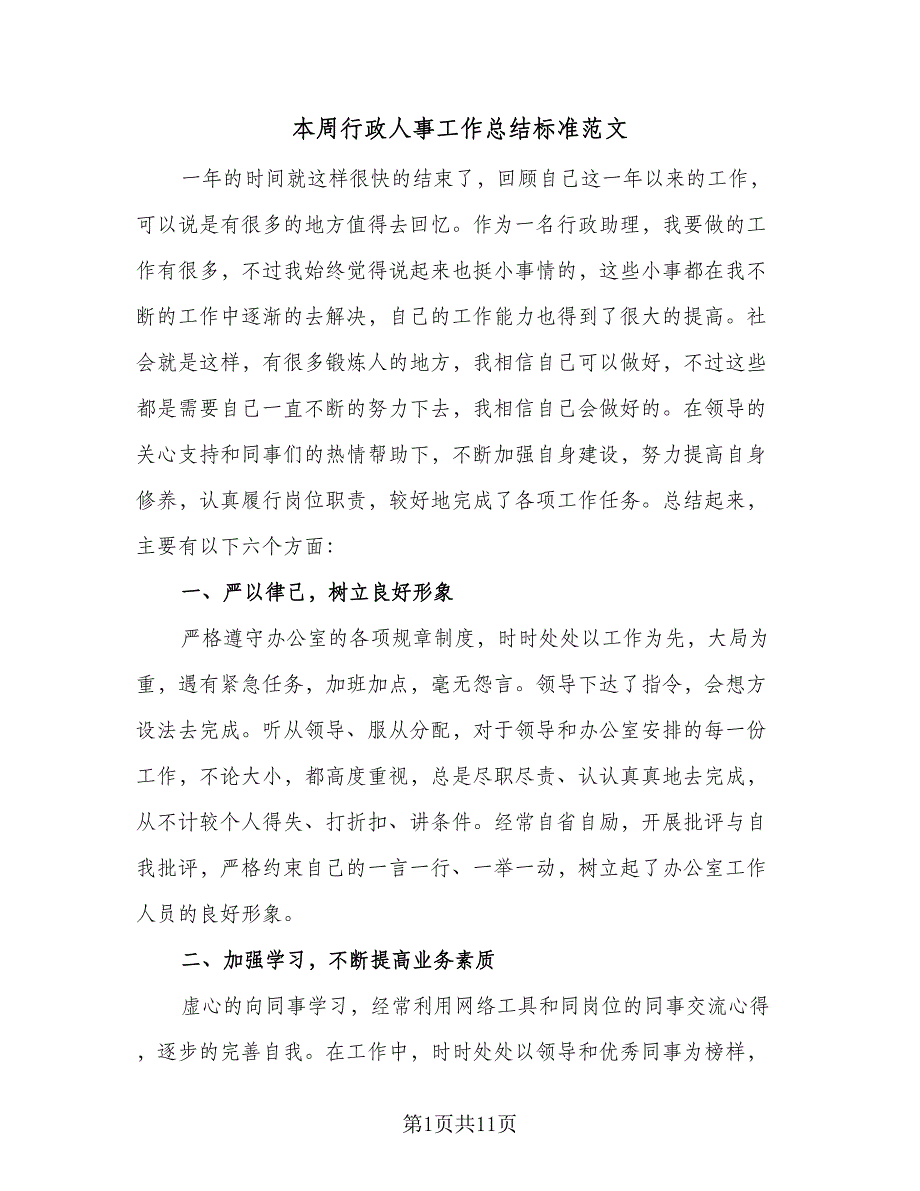 本周行政人事工作总结标准范文
一年的时间就这样很快的结束了，回顾自己这一年以来的工作，
可以说是有很多的地方值得去回忆。作为一名行政助理，我要做的工
作有很多，不过我始终觉得说起来也挺小事情的，这些小事都在我不
断的工作中逐渐的去解决，自己的工作能力也得到了很大的提高。社
会就是这样，有很多锻炼人的地方，我相信自己可以做好，不过这些
都是需要自己一直不断的努力下去，我相信自己会做好的。在领导的
关心支持和同事们的热情帮助下，不断加强自身建设，努力提高自身
修养，认真履行岗位职责，较好地完成了各项工作任务。总结起来，
主要有以下六个方面：
一、严以律己，树立良好形象
严格遵守办公室的各项规章制度，时时处处以工作为先，大局为
重，遇有紧急任务，加班加点，毫无怨言。领导下达了指令，会想方
设法去完成。听从领导、服从分配，对于领导和办公室安排的每一份
工作，不论大小，都高度重视，总是尽职尽责、认认真真地去完成，
从不计较个人得失、打折扣、讲条件。经常自省自励，开展批评与自
我批评，严格约束自己的一言一行、一举一动，树立起了办公室工作
人员的良好形象。
二、加强学习，不断提高业务素质
虚心的向同事学习，经常利用网络工具和同岗位的同事交流心得
，逐步的完善自我。在工作中，时时处处以领导和优秀同事为榜样，
第1页共11页